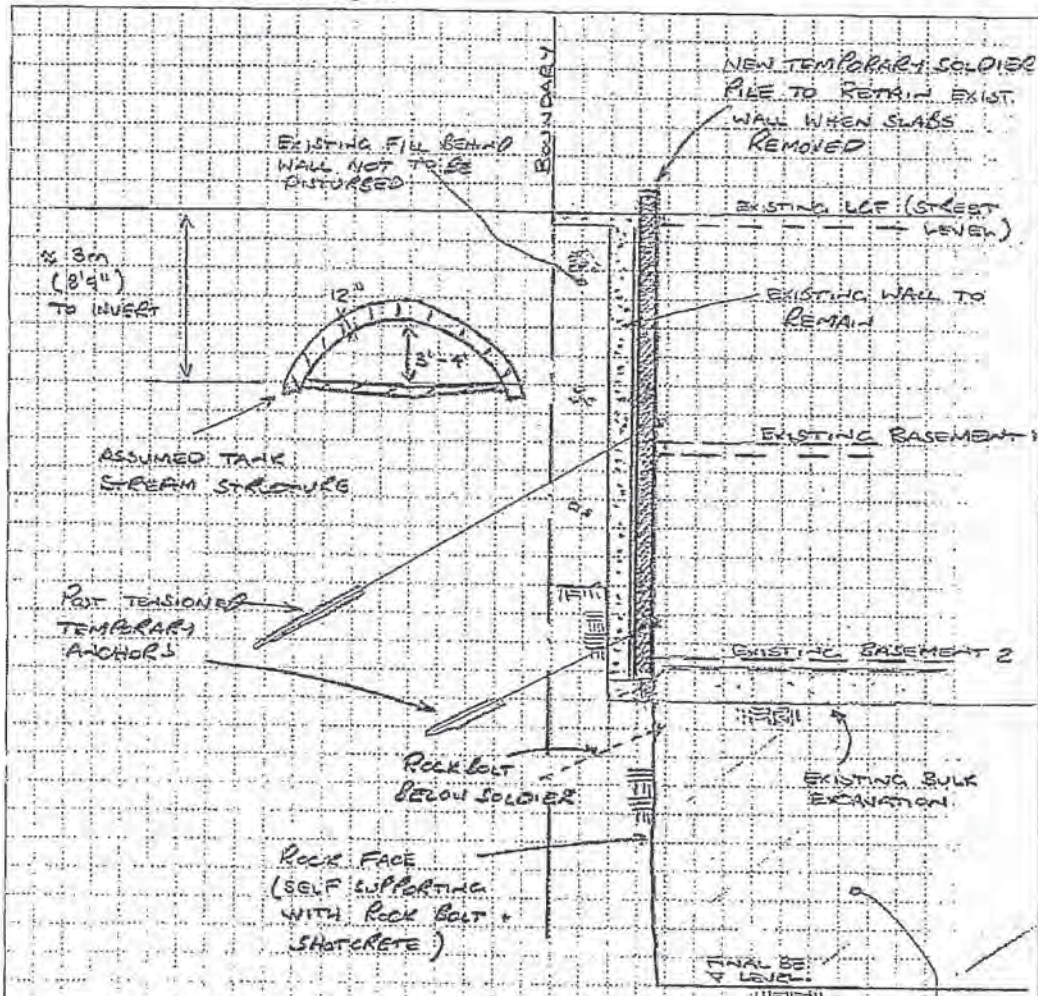 BOUNDARY
NEW TEMPORARY SOLDIER
PILE TO RETAIN EXIST.
WALL WHEN SLABS
REMOVED
EXISTING FILL BEHIND
WALL NOT TO BE
DISTURBED
EXISTING LGF (STREET
LEVEL)
≈ 3m
(8'9")
TO INVERT
12"
3'-4'
EXISTING WALL TO
REMAIN
ASSUMED TANK
STREAM STRUCTURE
EXISTING BASEMENT 1
POST TENSIONED
TEMPORARY
ANCHORS
EXISTING BASEMENT 2
ROCK BOLT
BELOW SOLDIER
EXISTING BULK
EXCAVATION
ROCK FACE
(SELF SUPPORTING
WITH ROCK BOLT +
SHOTCRETE)
FINAL BE
LEVEL.